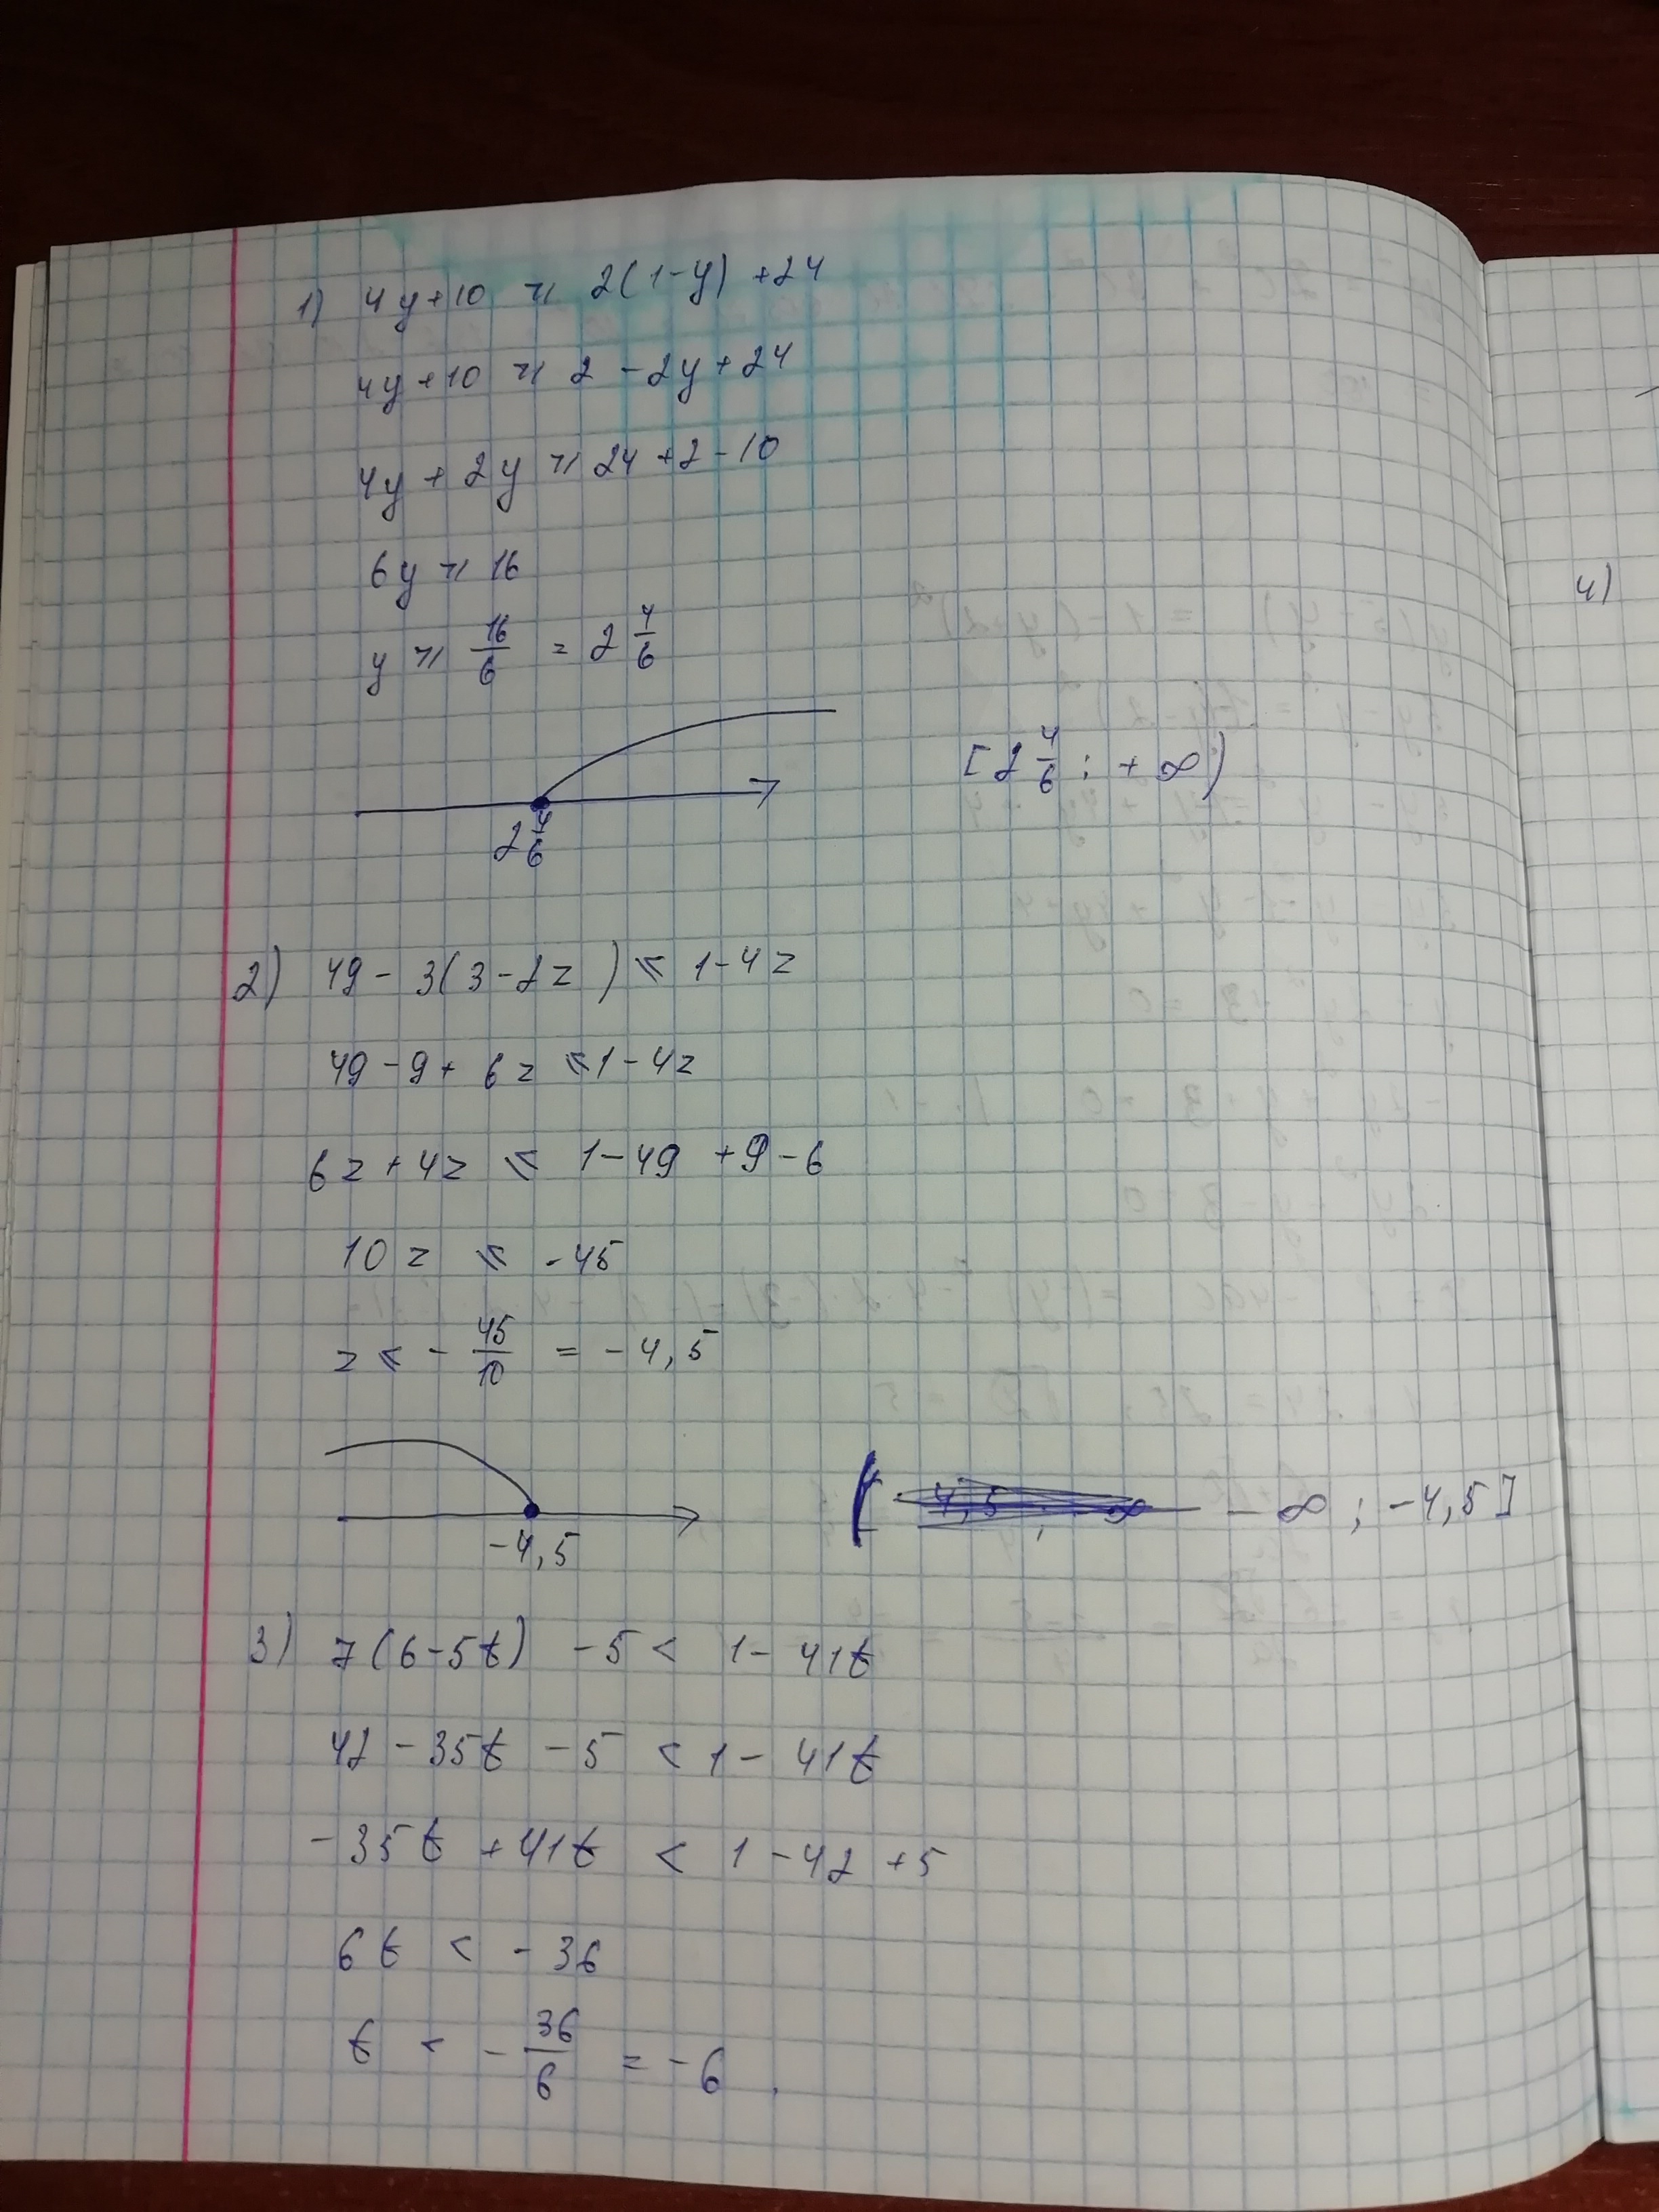 1) 4y+10 ≥ 2(1-y)+24
4y+10 ≥ 2-2y+24
4y+2y ≥ 24+2-10
6y ≥ 16
y ≥ 16/6 = 2 4/6
2 4/6
[2 4/6; +∞)
2) 49-3(3-2z) ≤ 1-4z
49-9+6z ≤ 1-4z
6z+4z ≤ 1-49+9-6
10z ≤ -45
z ≤ -45/10 = -4,5
-4,5
( -∞; -4,5]
3) 7(6-5t) -5 < 1-41t
42-35t-5 < 1-41t
-35t+41t < 1-42+5
6t < -36
t < -36/6 = -6.
4)